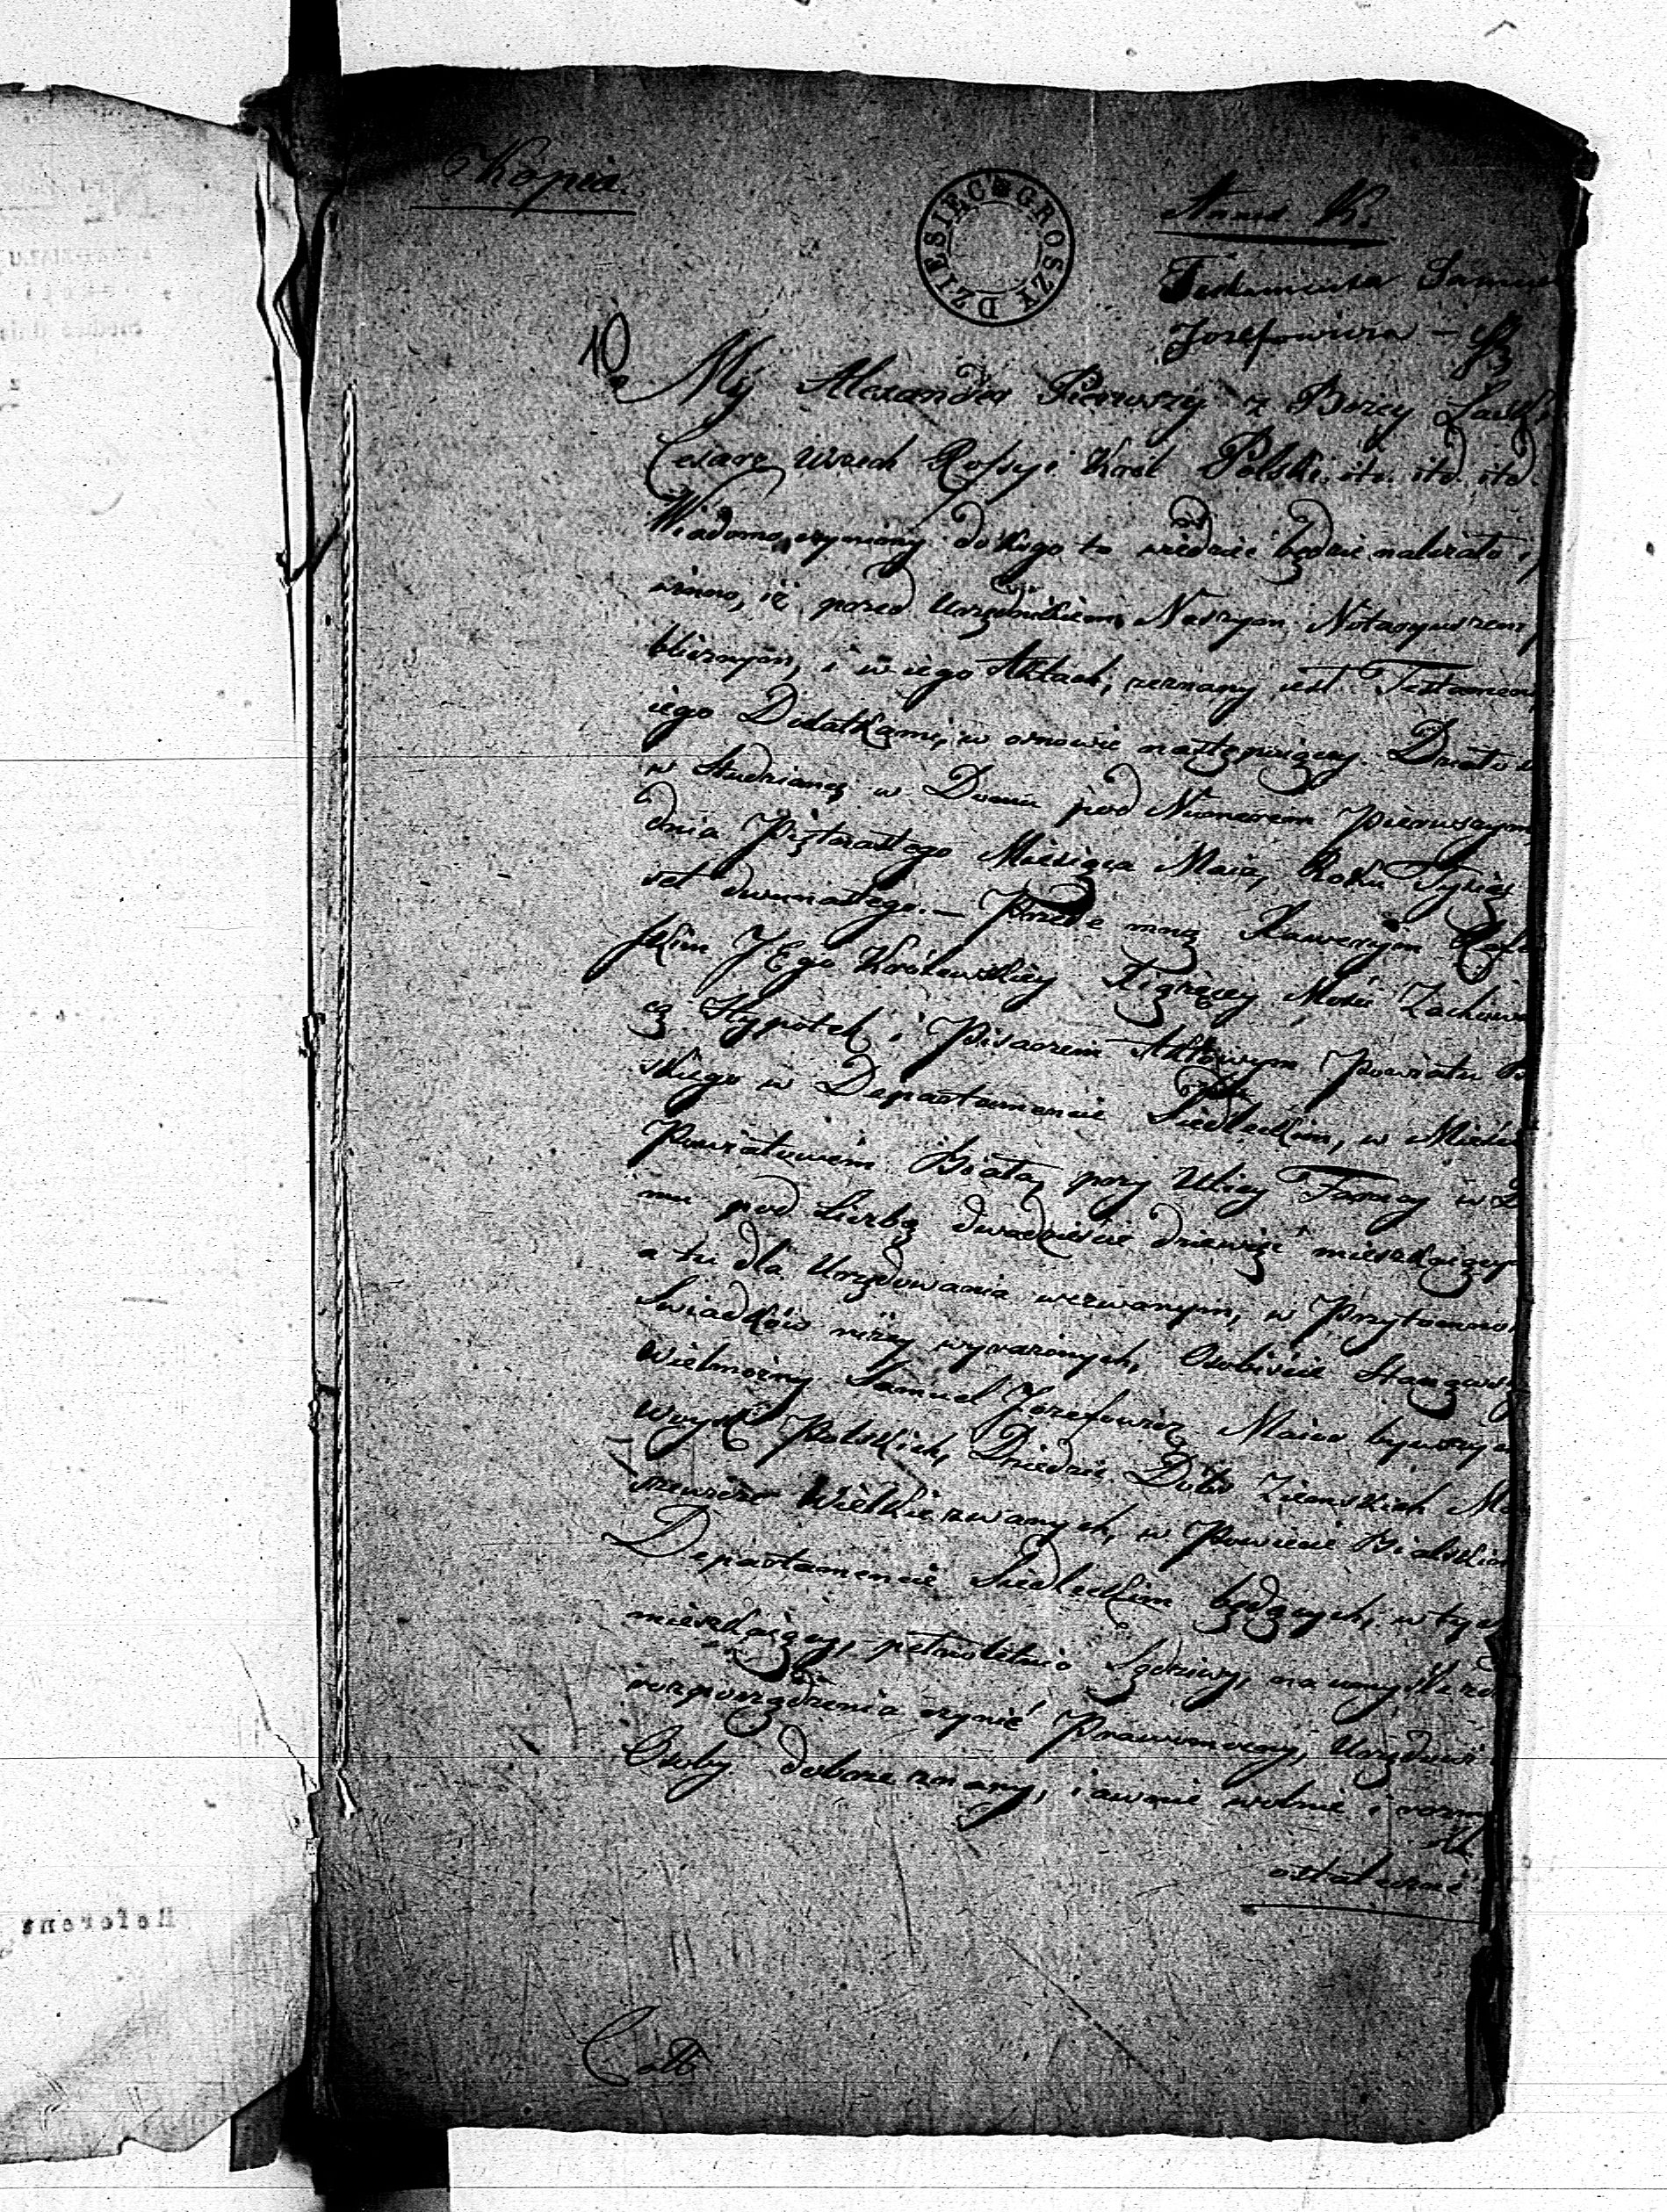 Kopia
DZIESIĘC GROSZY
Testamenta Samue
Jozefowicza
10
My Alexander Pierwszy z Bożey Łaski
Cesarz Wszech Rossyi Król Polski itd. itd. itd.
Wiadomo czyniemy do kogo to wiedzieć będzie należało i
winno, iż przed Urzędnikiem Naszym Notaryuszem
blicznym, i w iego Aktach, zeznany iest Testamen
iego Dodatkami, w osnowie następuiącey. Działo
w Studziance w Domu pod Numerem Pierwszym
dnia Piętnastego Miesiąca Maia, Roku Tysiąc
set dwunastego. — Przede mną Xawerym
skim JEgo Królewskiey Xiążęcey Mości Zachowa
cą Hypotek i Pisarzem Aktowym Powiatu B
skiego w Departamencie Siedleckim, w Mieście
Powiatowem Biała, przy Ulicy Farney w D
mu pod Liczbą dwadzieścia dziewięć mieszkaiący
a tu dla Urzędowania wezwanym, w Przytomno
Swiadków niżey wyrażonych, Osobiście Stanąwszy
Wielmożny Samuel Jozefowicz Maior bywszych
Woysk Polskich, Dziedzic Dóbr Ziemskich
szewicze Wielkie zwanych, w Powiecie Bialskim
Departamencie Siedleckim będących, w tych
mieszkaiący, pełnoletnio Sędziwy, na umyśle zd
rozporządzenia czynić Prawomocny, Urzędowi
Osoby dobrze znany, iawnie wolnie i rozm
ostatecznie